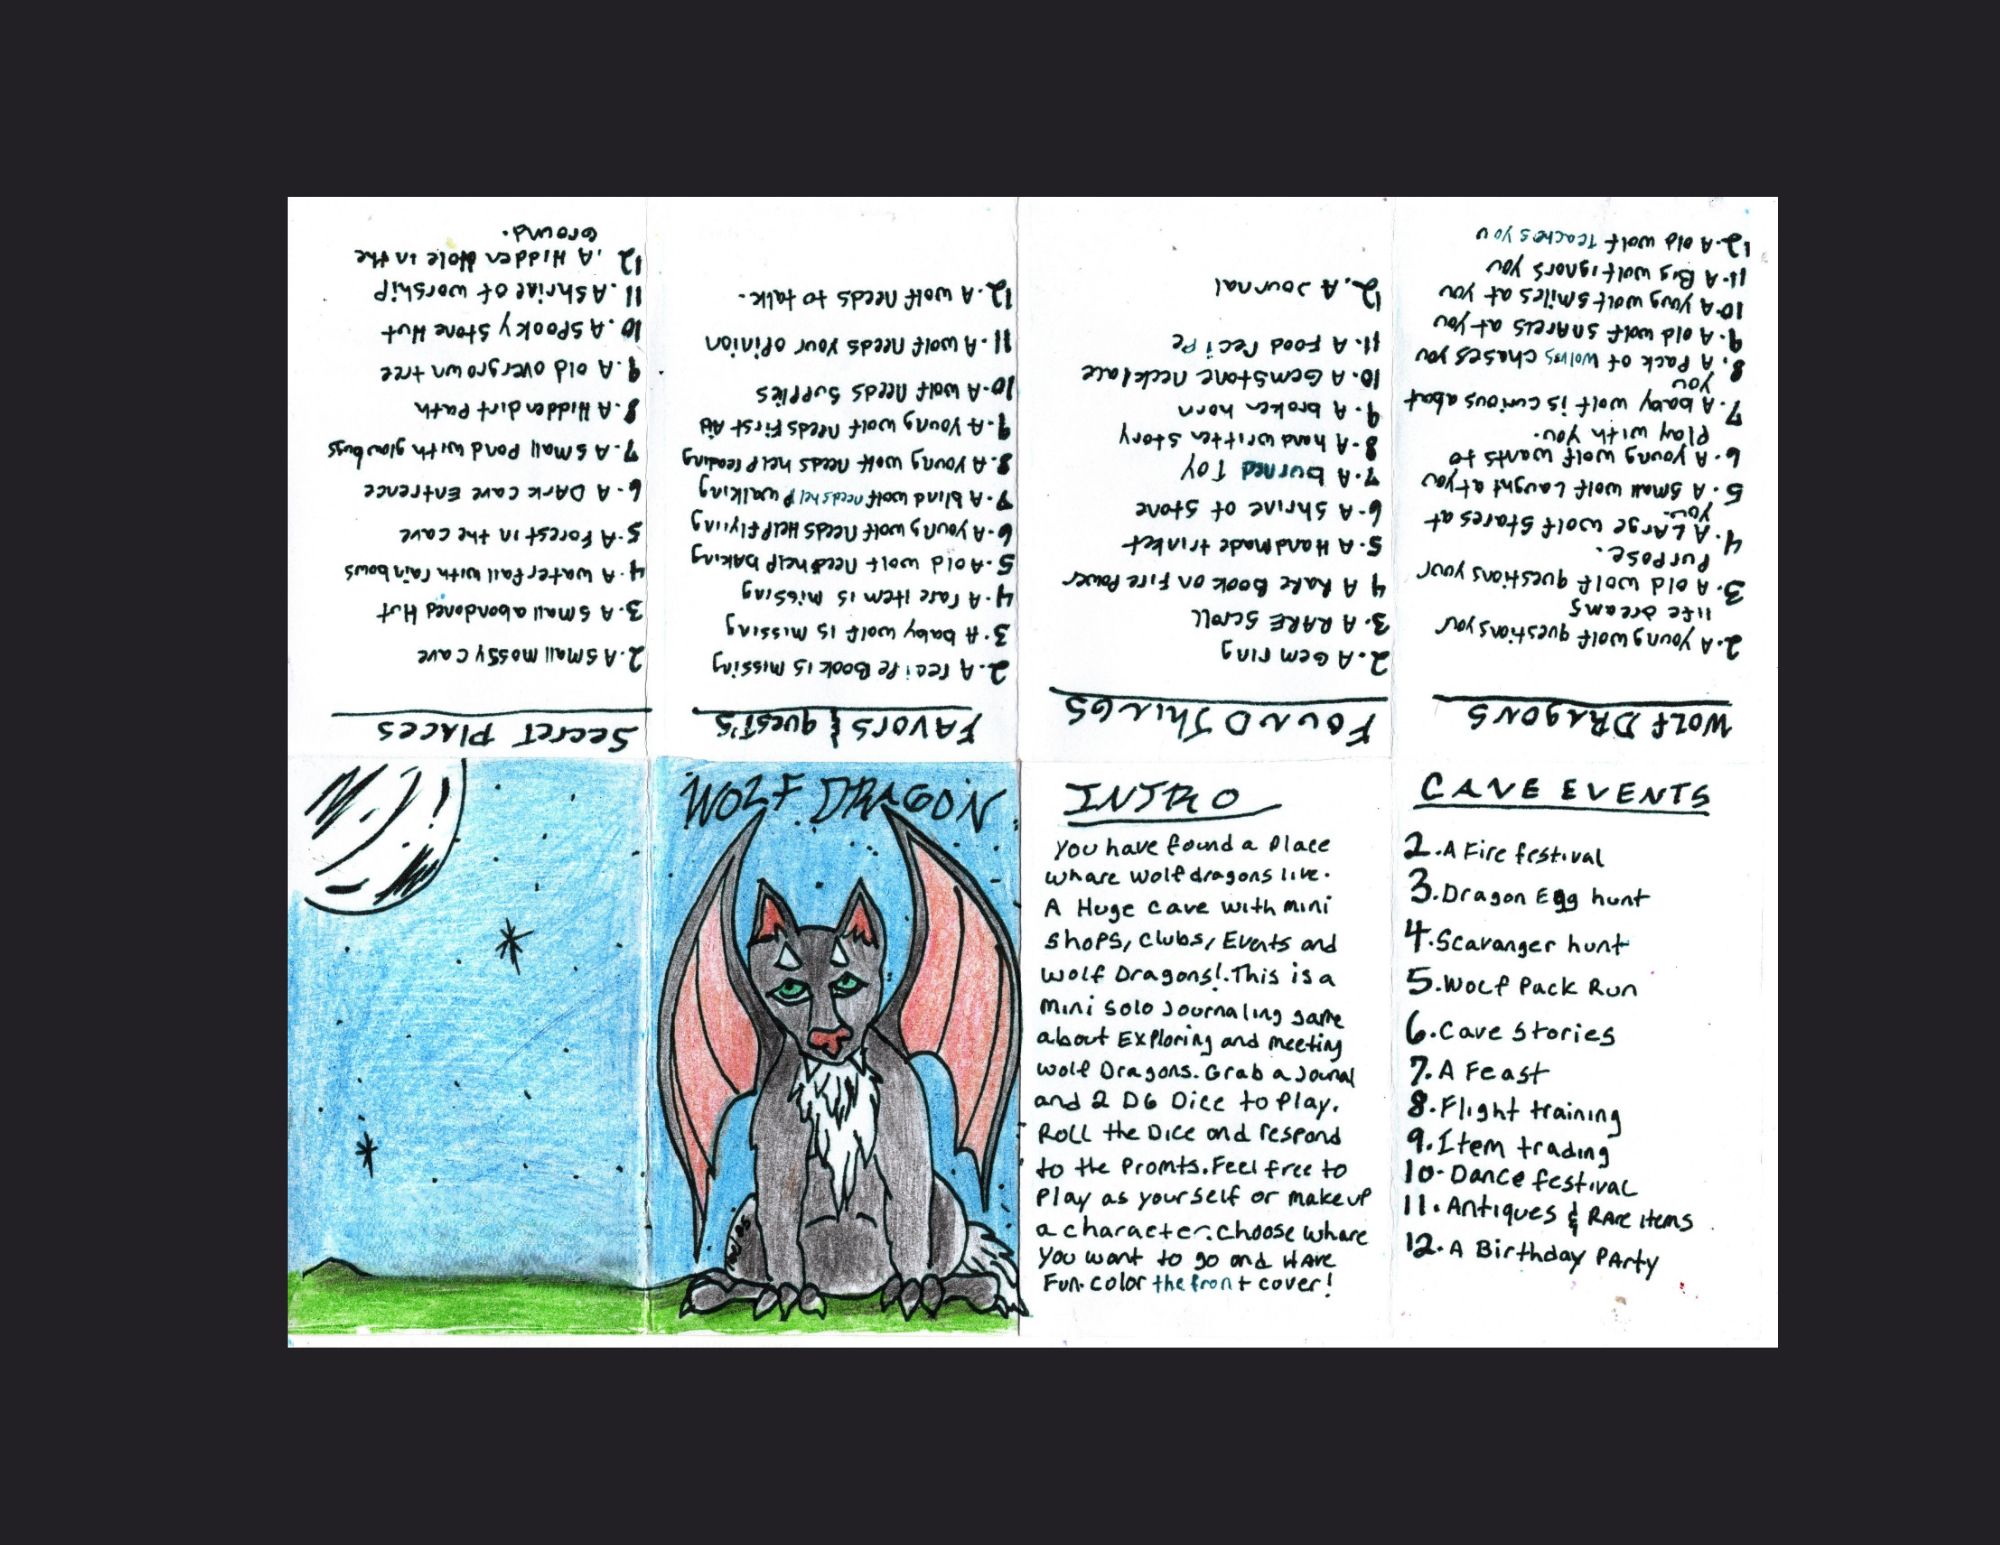 WOLF DRAGON
INTRO
You have found a Place
whare wolf dragons live.
A Huge cave with mini
shops, clubs, Events and
wolf Dragons!. This is a
mini solo Journaling game
about Exploring and meeting
wolf Dragons. Grab a Jounal
and 2 D6 Dice to Play.
Roll the Dice and respond
to the Promts. Feel free to
Play as yourself or make up
a character. Choose whare
You want to go and HAve
Fun. Color the front cover!
CAVE EVENTS
2. A Fire festival
3. Dragon Egg hunt
4. Scavanger hunt
5. Wolf Pack Run
6. Cave stories
7. A Feast
8. Flight training
9. Item trading
10. Dance festival
11. Antiques & RAre items
12. A Birthday PArty
WOLF DRAgONS
2. A young wolf questions your
life dreams
3. A old wolf questions your
Purpose.
4. A LArge wolf Stares at
you.
5. A Small wolf Laught at you
6. A young wolf wants to
Play with you.
7. A baby wolf is curious abat
you
8. A Pack of wolves chases you
9. A old wolf snarels at you
10. A young wolf smiles at you
11. A Big wolf ignors you
12. A old wolf teaches you
FOUND ThINGS
2. A Gem ring
3. A RARE Scroll
4 A RaRe Book on Fire Power
5. A Handmade trinket
6. A Shrine of Stone
7. A burned Toy
8. A hand written Story
9. A broken horn
10. A Gemstone necklace
11. A Food recipe
12. A Journal
FAVORS & quest's
2. A recipe Book is missing
3. A baby wolf is missing
4. A rare item is missing
5. A old wolf need help baking
6. A young wolf needs Help Flying
7. A blind wolf needs help walking
8. A young wolf needs help reading
9. A Young wolf needs First Aid
10. A wolf needs supplies
11. A wolf needs your opinion
12. A wolf needs to talk.
Secret Places
2. A small mossy cave
3. A small abondoned Hut
4. A waterfall with rainbows
5. A Forest in the cave
6. A DArk cave Entrence
7. A small Pond with glow bugs
8. A Hidden dirt Path
9. A old overgrown tree
10. A SPooky stone Hut
11. A shrine of worship
12. A Hidden Hole in the
Ground.